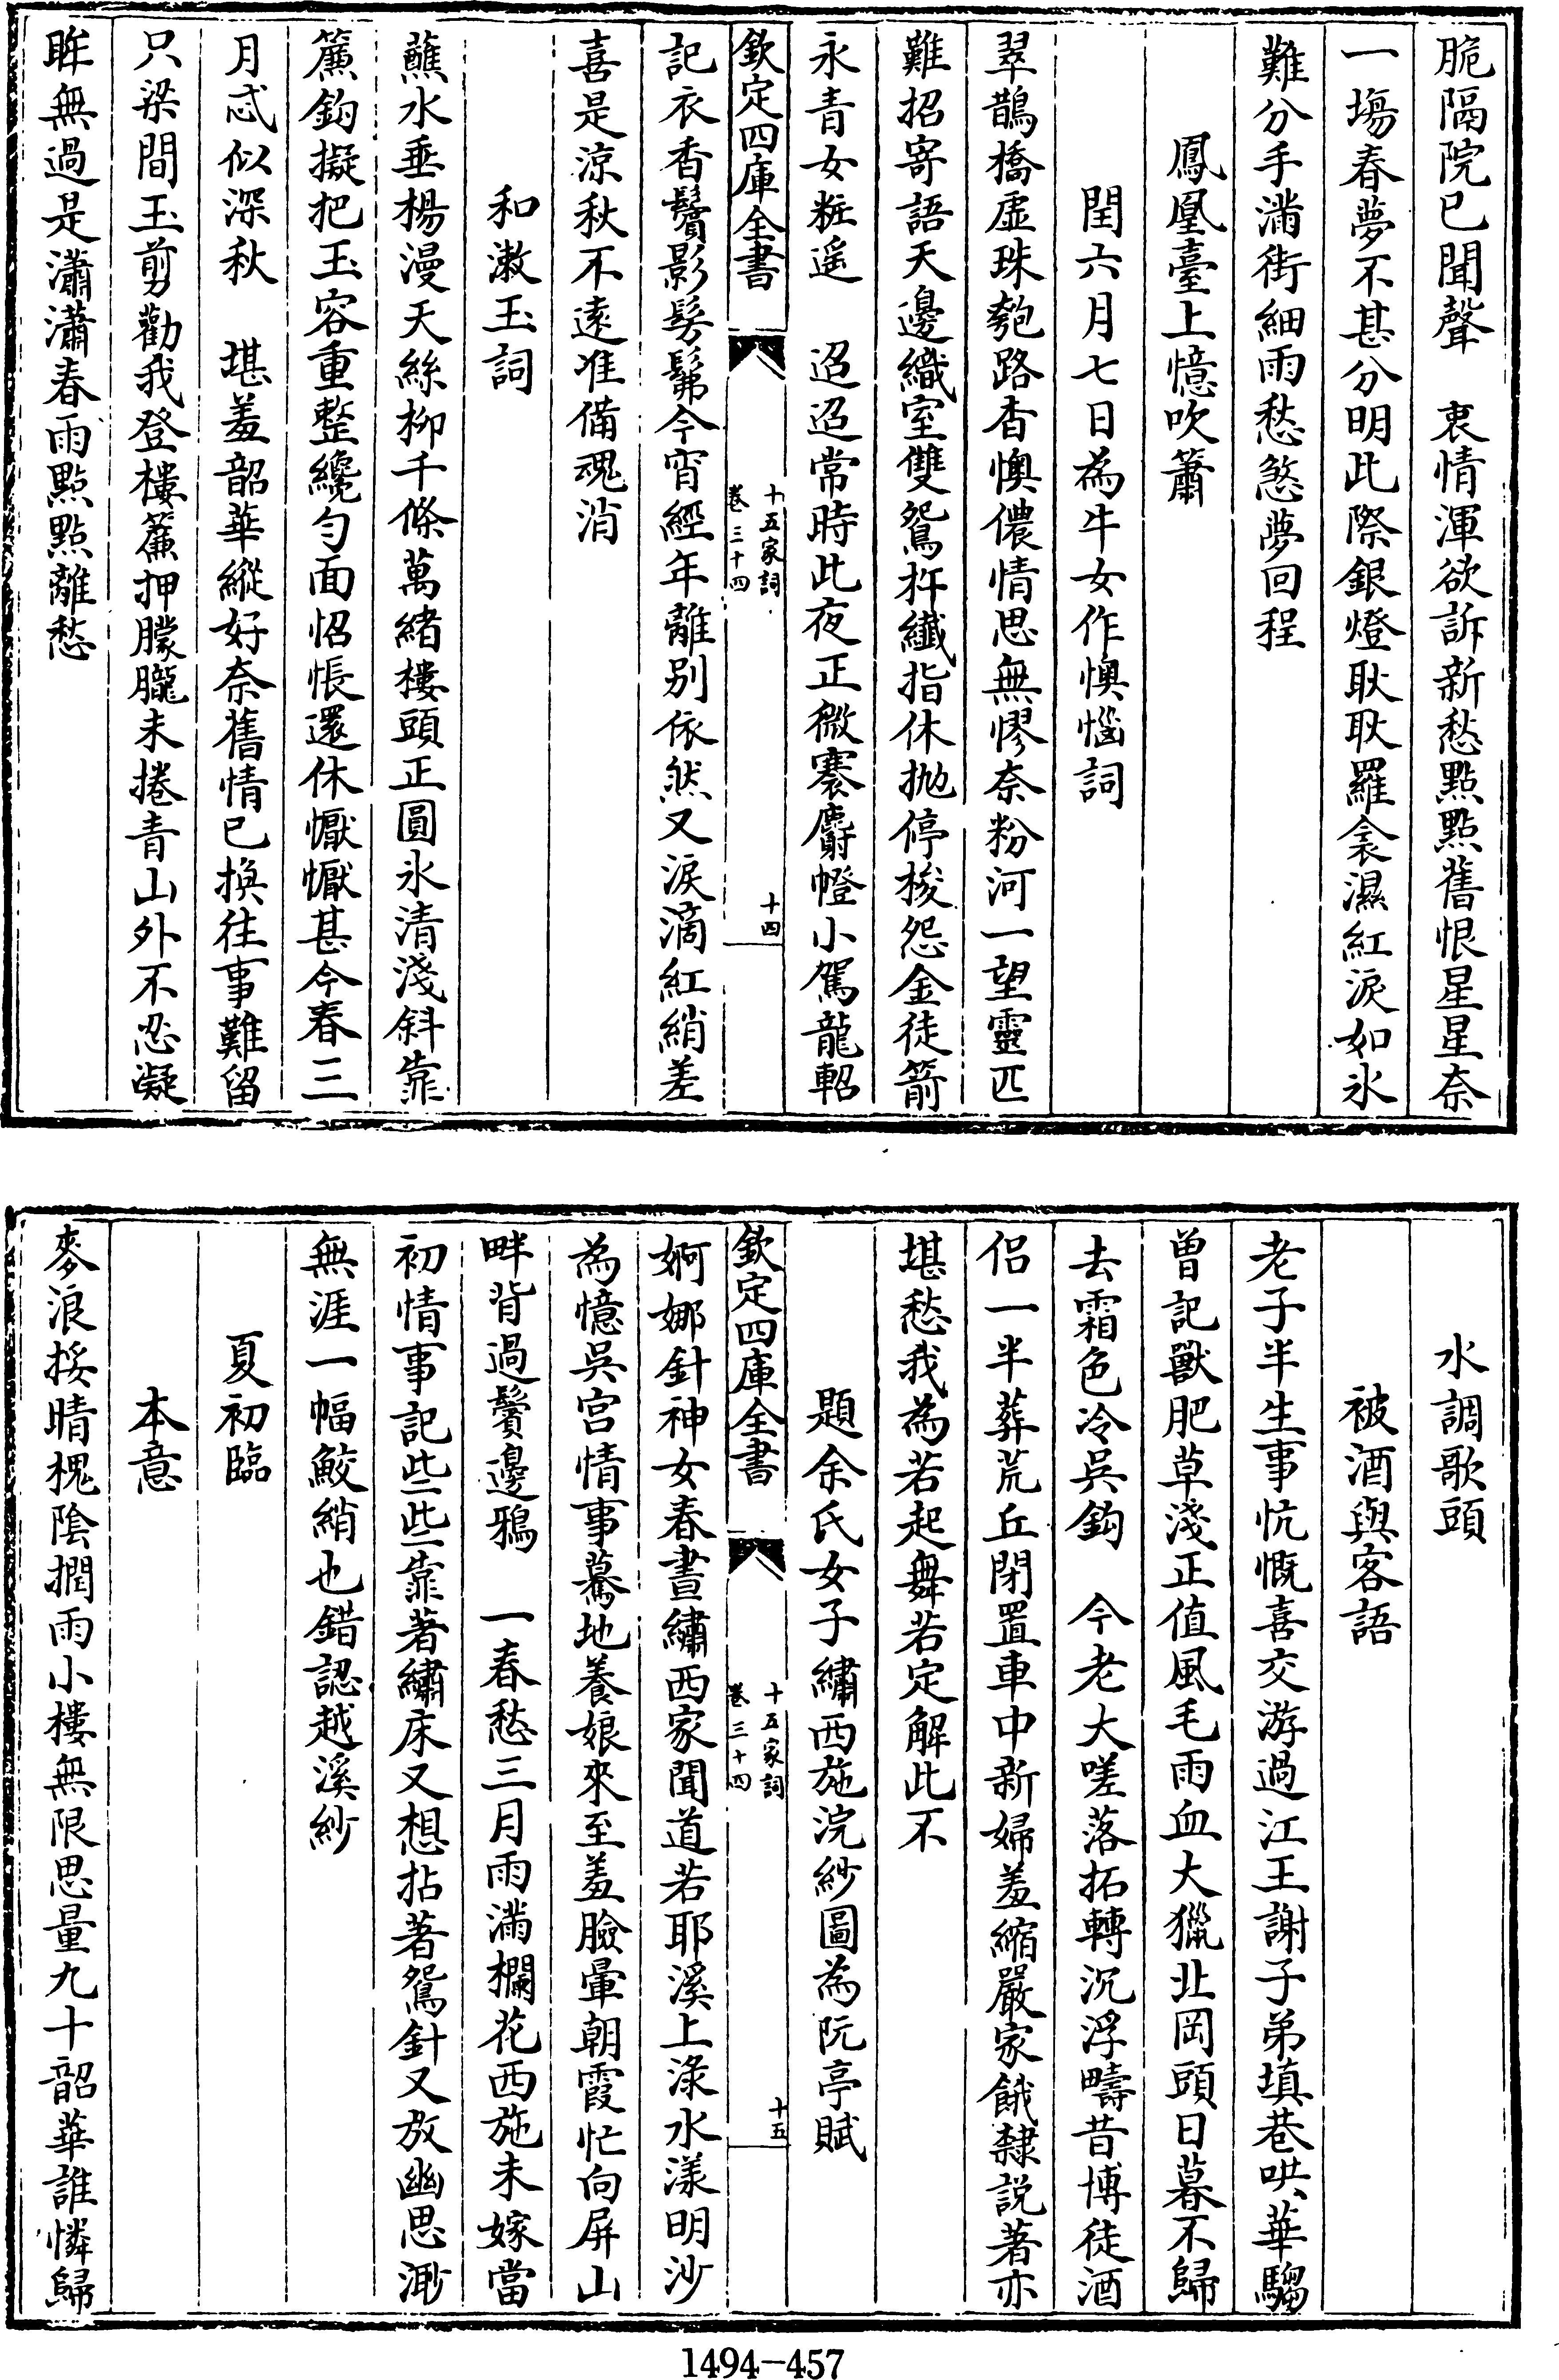 脆隔院已聞聲　衷情渾欲訴新愁點點舊恨星星奈
一塲春夢不甚分明此際銀燈耿耿羅衾濕紅淚如氷
難分手滿街細雨愁煞夢回程
鳳凰臺上憶吹簫
閏六月七日為牛女作懊惱詞
翠鵲橋虛珠匏路杳懊儂情思無憀奈粉河一望靈匹
難招寄語天邊織室雙鴛杼纖指休拋停梭怨金徒箭
永青女粧遥　迢迢常時此夜正微褰麝幰小駕龍軺
欽定四庫全書
十五家詞
卷三十四
十四
記衣香鬢影髣髴今宵經年離別依然又淚滴紅綃差
喜是凉秋不遠准備魂消
和潄玉詞
蘸水垂楊漫天絲柳千條萬緒樓頭正圓氷清淺斜靠
簾鈎擬把玉容重整纔勻面怊悵還休懨懨甚今春三
月忒似深秋　堪羞韶華縱好奈舊情已換往事難留
只梁間玉剪勸我登樓簾押朦朧未捲青山外不忍凝
眸無過是瀟瀟春雨點點離愁
水調歌頭
被酒與客語
老子半生事忼慨喜交游過江王謝子弟填巷哄華騶
曾記獸肥草淺正值風毛雨血大獵北岡頭日暮不歸
去霜色冷吳鈎　今老大嗟落拓轉沉浮疇昔博徒酒
侣一半葬荒丘閉置車中新婦羞縮嚴家餓隸説著亦
堪愁我為若起舞若定解此不
題余氏女子繡西施浣紗圖為阮亭賦
欽定四庫全書
十五家詞
卷三十四
十五
婀娜針神女春晝繡西家聞道若耶溪上淥水漾明沙
為憶吳宫情事驀地養娘來至羞臉暈朝霞忙向屏山
畔背過鬢邊鴉　一春愁三月雨滿欄花西施未嫁當
初情事記些些靠著繡床又想拈著鴛針又放幽思渺
無涯一幅鮫綃也錯認越溪紗
夏初臨
本意
麥浪挼晴槐陰撋雨小樓無限思量九十韶華誰憐歸
1494-457